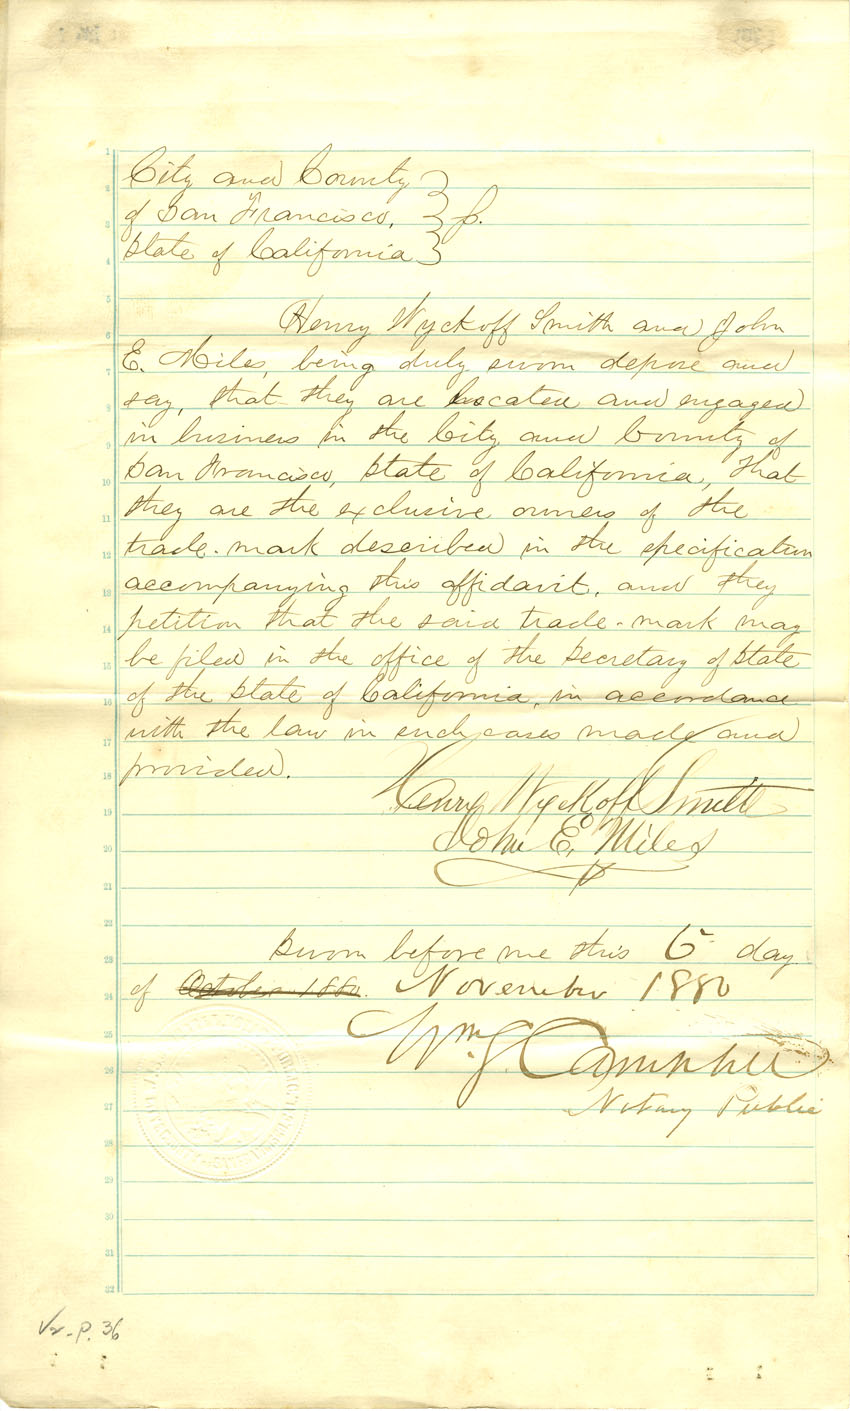 City and County
of San Francisco, } ss.
State of California
Henry Wyckoff Smith and John
E. Miles, being duly sworn depose and
say, that they are located and engaged
in business in the City and County of
San Francisco, State of California, that
they are the exclusive owners of the
trade-mark described in the specification
accompanying this affidavit, and they
petition that the said trade-mark may
be filed in the office of the Secretary of State
of the State of California, in accordance
with the law in such cases made and
provided.
Henry Wyckoff Smith
John E. Miles
Sworn before me this 6 day
of October 1880. November 1880
Wm. J. Campbell
Notary Public
1
2
3
4
5
6
7
8
9
10
11
12
13
14
15
16
17
18
19
20
21
22
23
24
25
26
27
28
29
30
31
32
P. 36